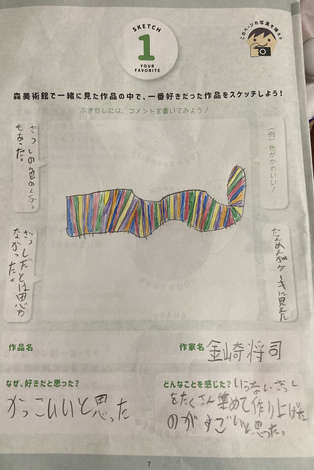 SKETCH
1
YOUR
FAVORITE
このページの写真を撮ろう
森美術館で一緒に見た作品の中で、一番好きだった作品をスケッチしよう!
ふきだしには、コメントを書いてみよう!
(例)色がかわいい!
ざっしの色の
もあった。
だんめんがケーキに見えた
ざっしだとは思わ
なかった。
作品名
作家名 金崎将司
なぜ、好きだと思った?
かっこいいと思った
どんなことを感じた? ざっし
をたくさん集めて作り上げた
のがすごいと思った。
7